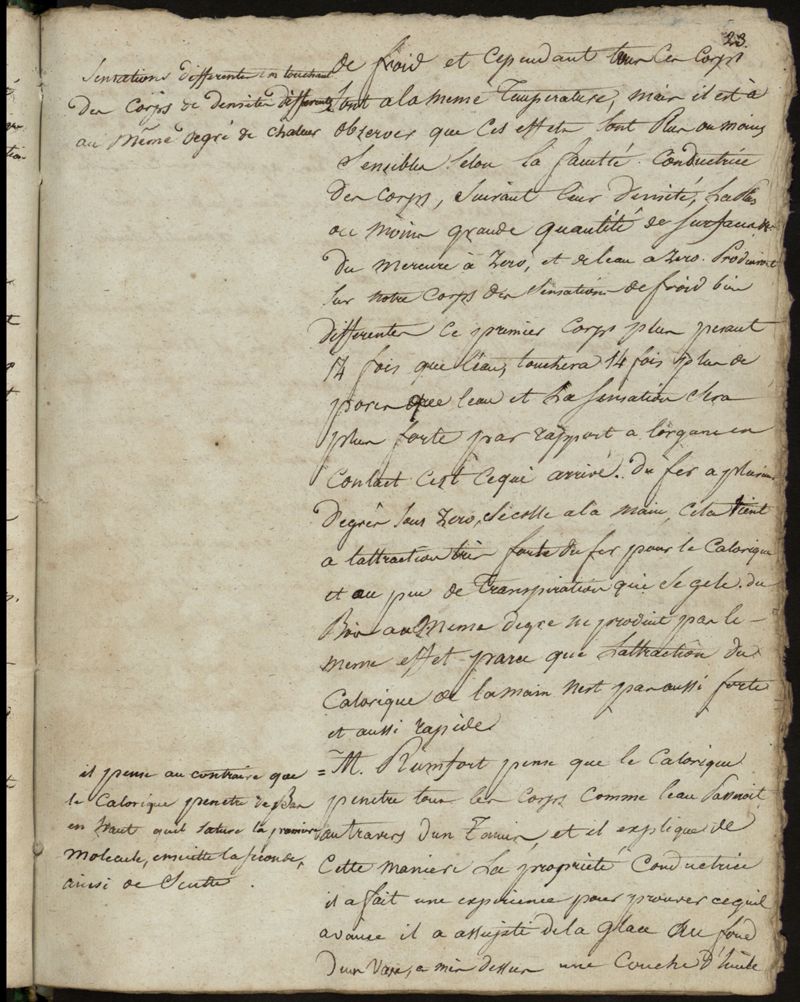 23.
Sensations differentes en touchant
des Corps de densites differentes
au même degré de chaleur
de froid et cependant tous ces corps
sont a la meme Temperature, mais il est à
observer que ces effets sont plus ou moins
sensibles selon la faculté conductrice
des corps, suivant leur densité, la plus
ou moins grande quantité de surfaces
du mercure à Zero, et de leau a zero. Produiront
sur notre corps des sensations de froid bien
differentes ce premier corps plus pesant
14 fois que l'eau, touchera 14 fois plus de
pores que leau et la sensation sera
plus forte par rapport a lorgane en
contact c'est ce qui arrive. Du fer a plusieurs
degrés sous Zero, se colle a la main, cela tient
a lattraction très forte du fer pour le Calorique
et au peu de Transpiration qui se gele. du
Bois au meme degre ne produit pas le
meme effet parce que lattraction du
Calorique de la main nest pas aussi forte
et aussi rapide
= M. Rumfort pense que le Calorique
penetre tous les corps comme leau Passeroit
autravers dun Tamis, et il explique de
Cette maniere la propriété Conductrice
il a fait une experience pour prouver cequil
avance il a assujeti de la glace au fond
dun Vase, a mis dessus une Couche d'huile
il pense au contraire que
le Calorique penetre de Bas
en haut quil sature la premiere
molecule, ensuitte la seconde,
ainsi de Suitte.